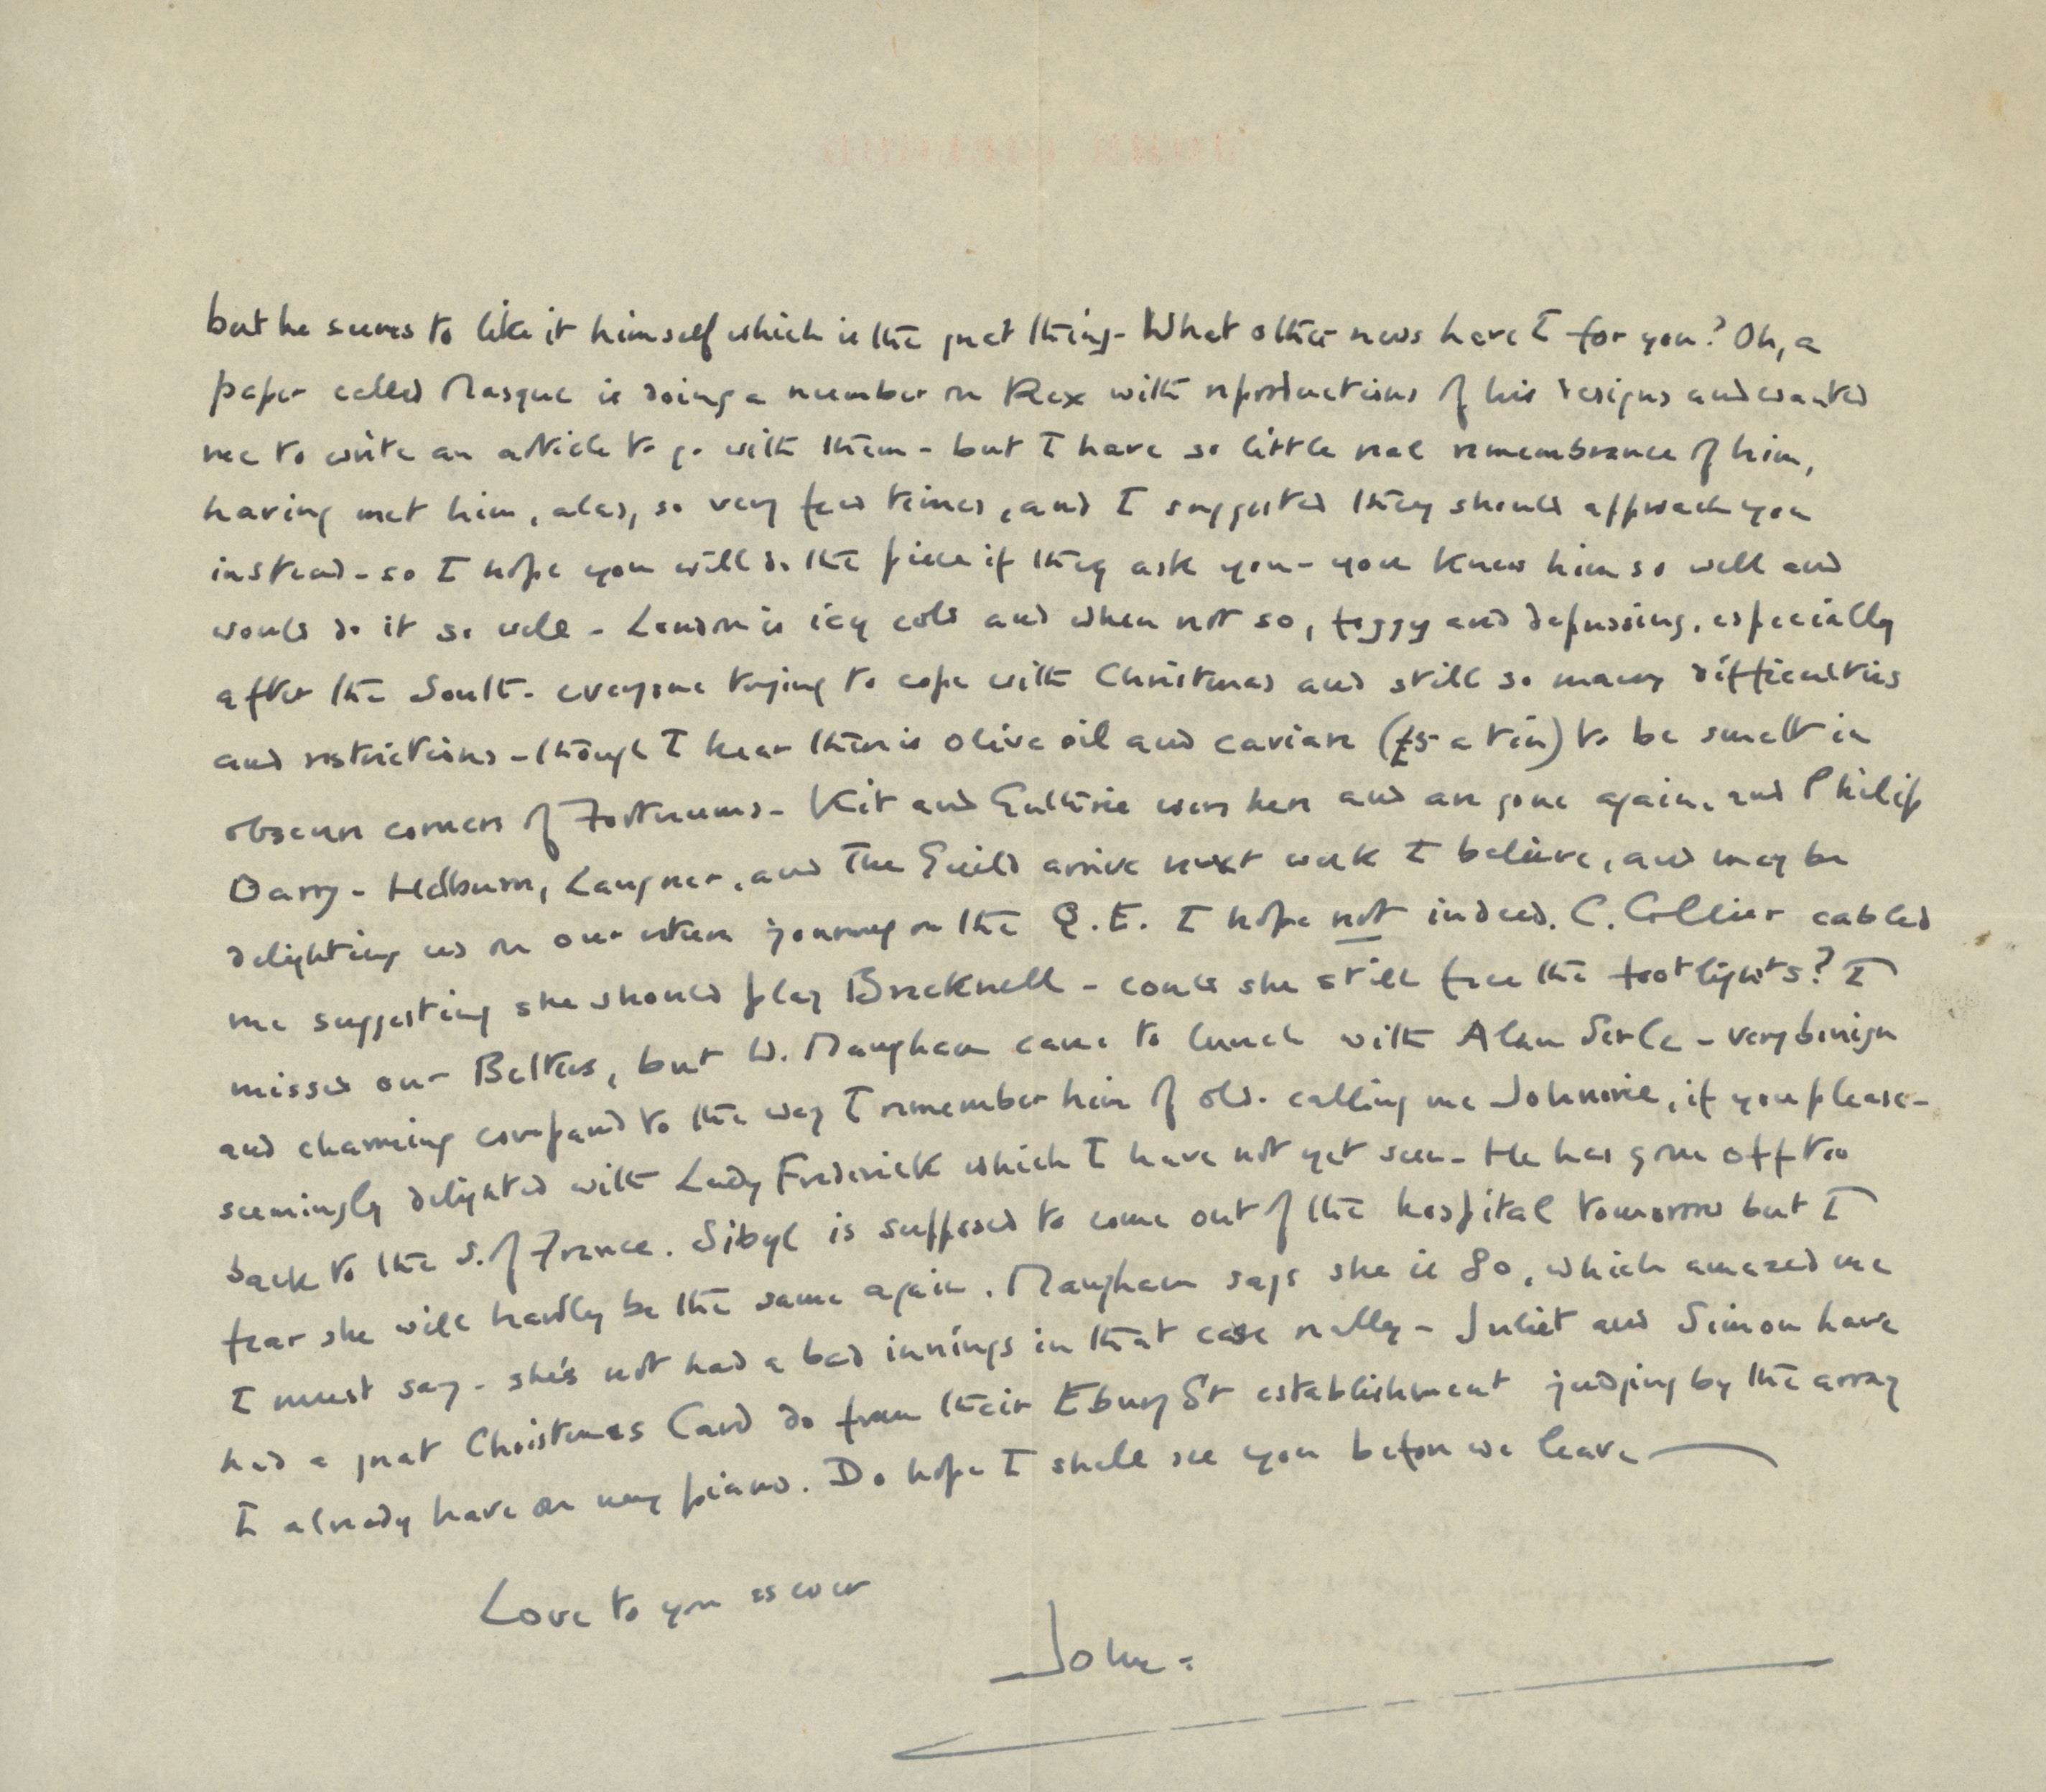 but he seems to like it himself which is the great thing - What other news have I for you? Oh, a
paper called Masque is doing a number on Rex with reproductions of his designs and wanted
me to write an article to go with them - but I have so little real remembrance of him,
having met him, alas, so very few times, and I suggested they should approach you
instead - so I hope you will do the piece if they ask you - you knew him so well and
would do it so well - London is icy cold and when not so, foggy and depressing, especially
after the South. everyone trying to cope with Christmas and still so many difficulties
and restrictions - though I hear there is olive oil and caviare (£5 a tin) to be smelt in
obscure corners of Fortnums - Kit and Guthrie were here and are gone again, and Philip
Barry - Helburn, Langner, and The Guild arrive next week I believe, and may be
delighting us on our return journey on the Q.E. I hope not indeed. C. Collier cabled
me suggesting she should play Bracknell - could she still face the footlights? I
missed our Betters, but W. Maugham came to lunch with Alan Serle - very benign
and charming compared to the way I remember him of old. calling me Johnnie, if you please -
seemingly delighted with Lady Frederick which I have not yet seen - He has gone off too
back to the S. of France. Sibyl is supposed to come out of the hospital tomorrow but I
fear she will hardly be the same again. Maugham says she is 80, which amazed me
I must say - she's not had a bad innings in that case really - Juliet and Simon have
had a great Christmas Card do from their Ebury St establishment judging by the array
I already have on my piano. Do hope I shall see you before we leave
Love to you as ever
John.